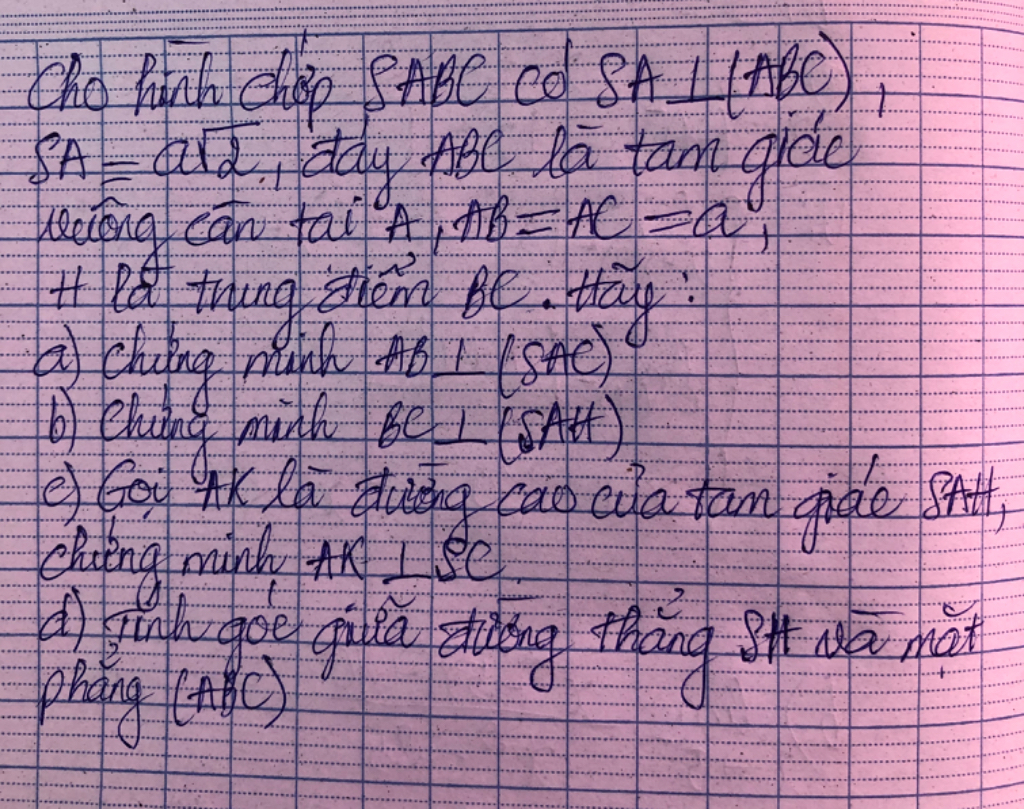 Cho hình chóp SABC có SA ⊥ (ABC),
SA = a√2, đáy ABC là tam giác
vuông cân tại A, AB = AC = a,
H là trung điểm BC. Hãy:
a) Chứng minh AB ⊥ (SAC)
b) Chứng minh BC ⊥ (SAH)
c) Gọi AK là đường cao của tam giác SAH,
chứng minh AK ⊥ SC.
d) Tính góc giữa đường thẳng SH và mặt
phẳng (ABC)